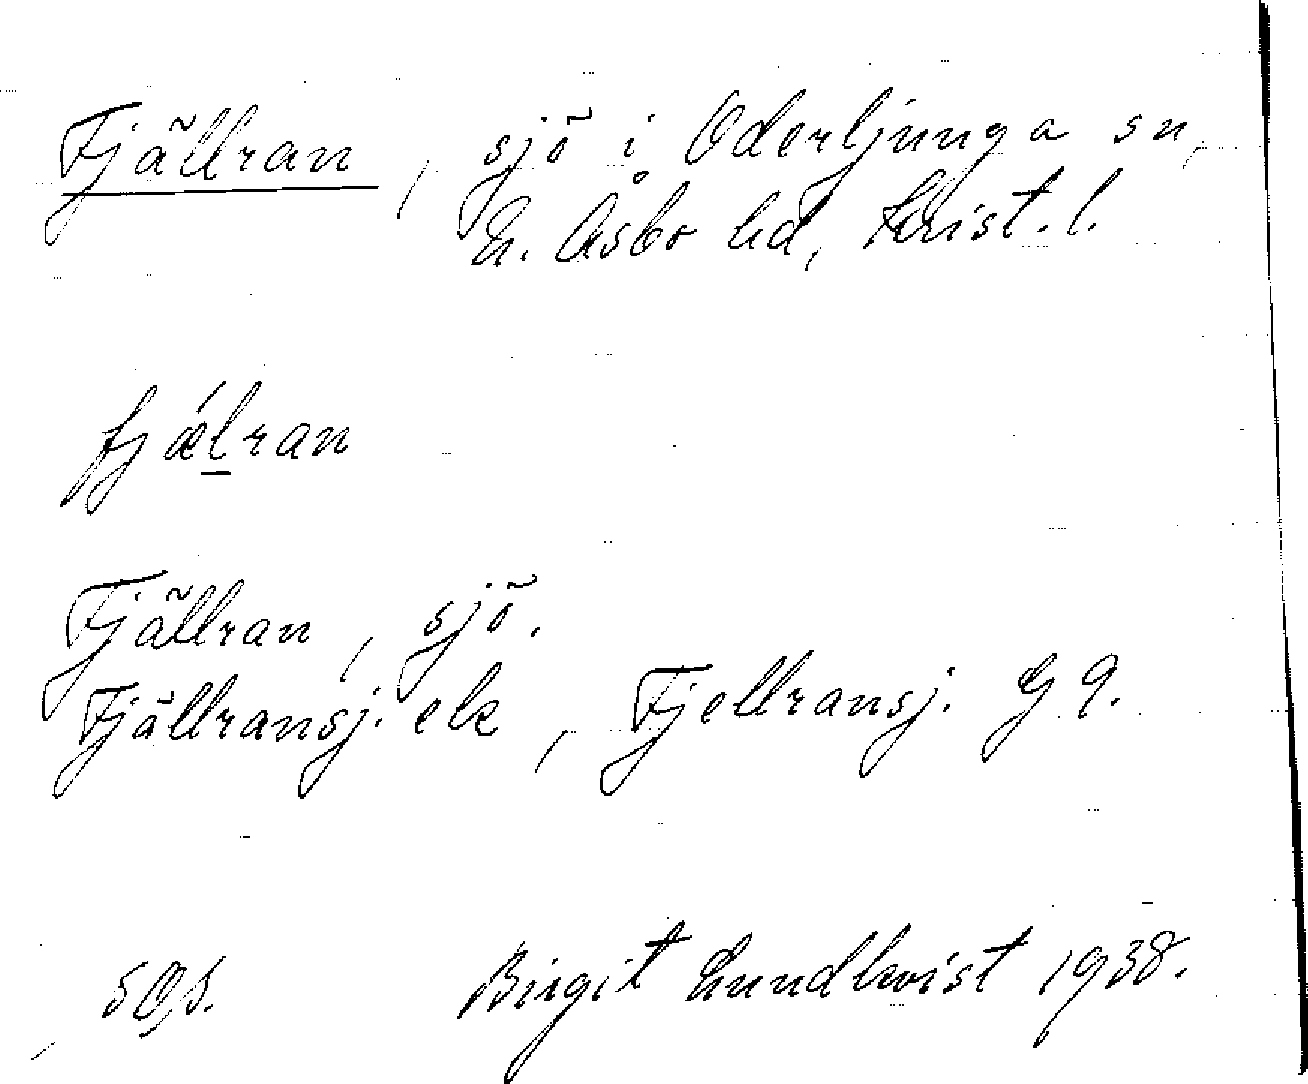 Fjällran, sjö i Oderljunga sn,
N. Åsbo hd, Krist. l.
fjǽlran
Fjällran, sjö.
Fjällransj. ek, Fjellransj. G 9.
Birgit Lundkvist 1938.